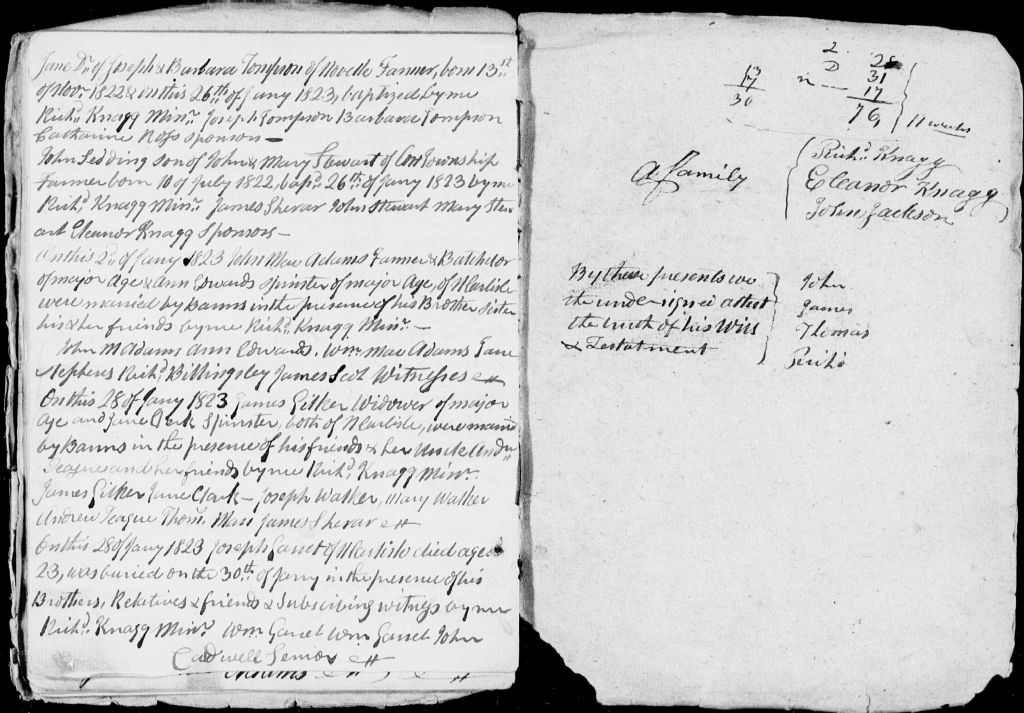 Jane Dr. of Joseph & Barbara Tompson of Farmer, born 13th
of Novr. 1822 & on this 26th of Jany 1823, baptized by me
Richd. Knagg Minr. Joseph Tompson Barbara Tompson
Catharine Ross sponsors —
John Sedding son of John & Mary Stewart of Township
Farmer born 10 of July 1822, bapd. 26th of Jany 1823 by me
Richd. Knagg Minr. James Shevar John Stewart Mary Stew
art Eleanor Knagg Sponsors —
On this 2d. of Jany 1823 John Mac Adams Farmer & Batchelor
of major Age & Ann Edwards spinster of major Age, of
were married by Banns in the presence of his Brother sister
his & her friends by me Richd. Knagg Minr. —
John M Adams Ann Edwards. Wm. Mac Adams Jane
Stephens Richd. Billingsley James Scot Witnesses
On this 28 of Jany 1823 James Widower of major
Age and Jane Clerk Spinster, both of were married
by Banns in the presence of his friends & her Uncle Andw
Teague and her friends by me Richd. Knagg Minr.
James Jane Clark — Joseph Walker, Mary Walker
Andrew Teague Thom. James Shevar
On this 28 of Jany 1823 Joseph Garret of died aged
23, was buried on the 30th of Jany in the presence of his
Brothers, Relatives & friends & Subscribing witness by me
Richd. Knagg Minr. Wm Garret Wm Garret John
Cadwell Senior
Adams
2 28
13 D 31
17 in — 17
30 76
11 weeks
A Family
Richd. Knagg
Eleanor Knagg
John Jackson
By these presents we
the undersigned attest
the truth of his Will
& Testatment
John
James
Thomas
Richd